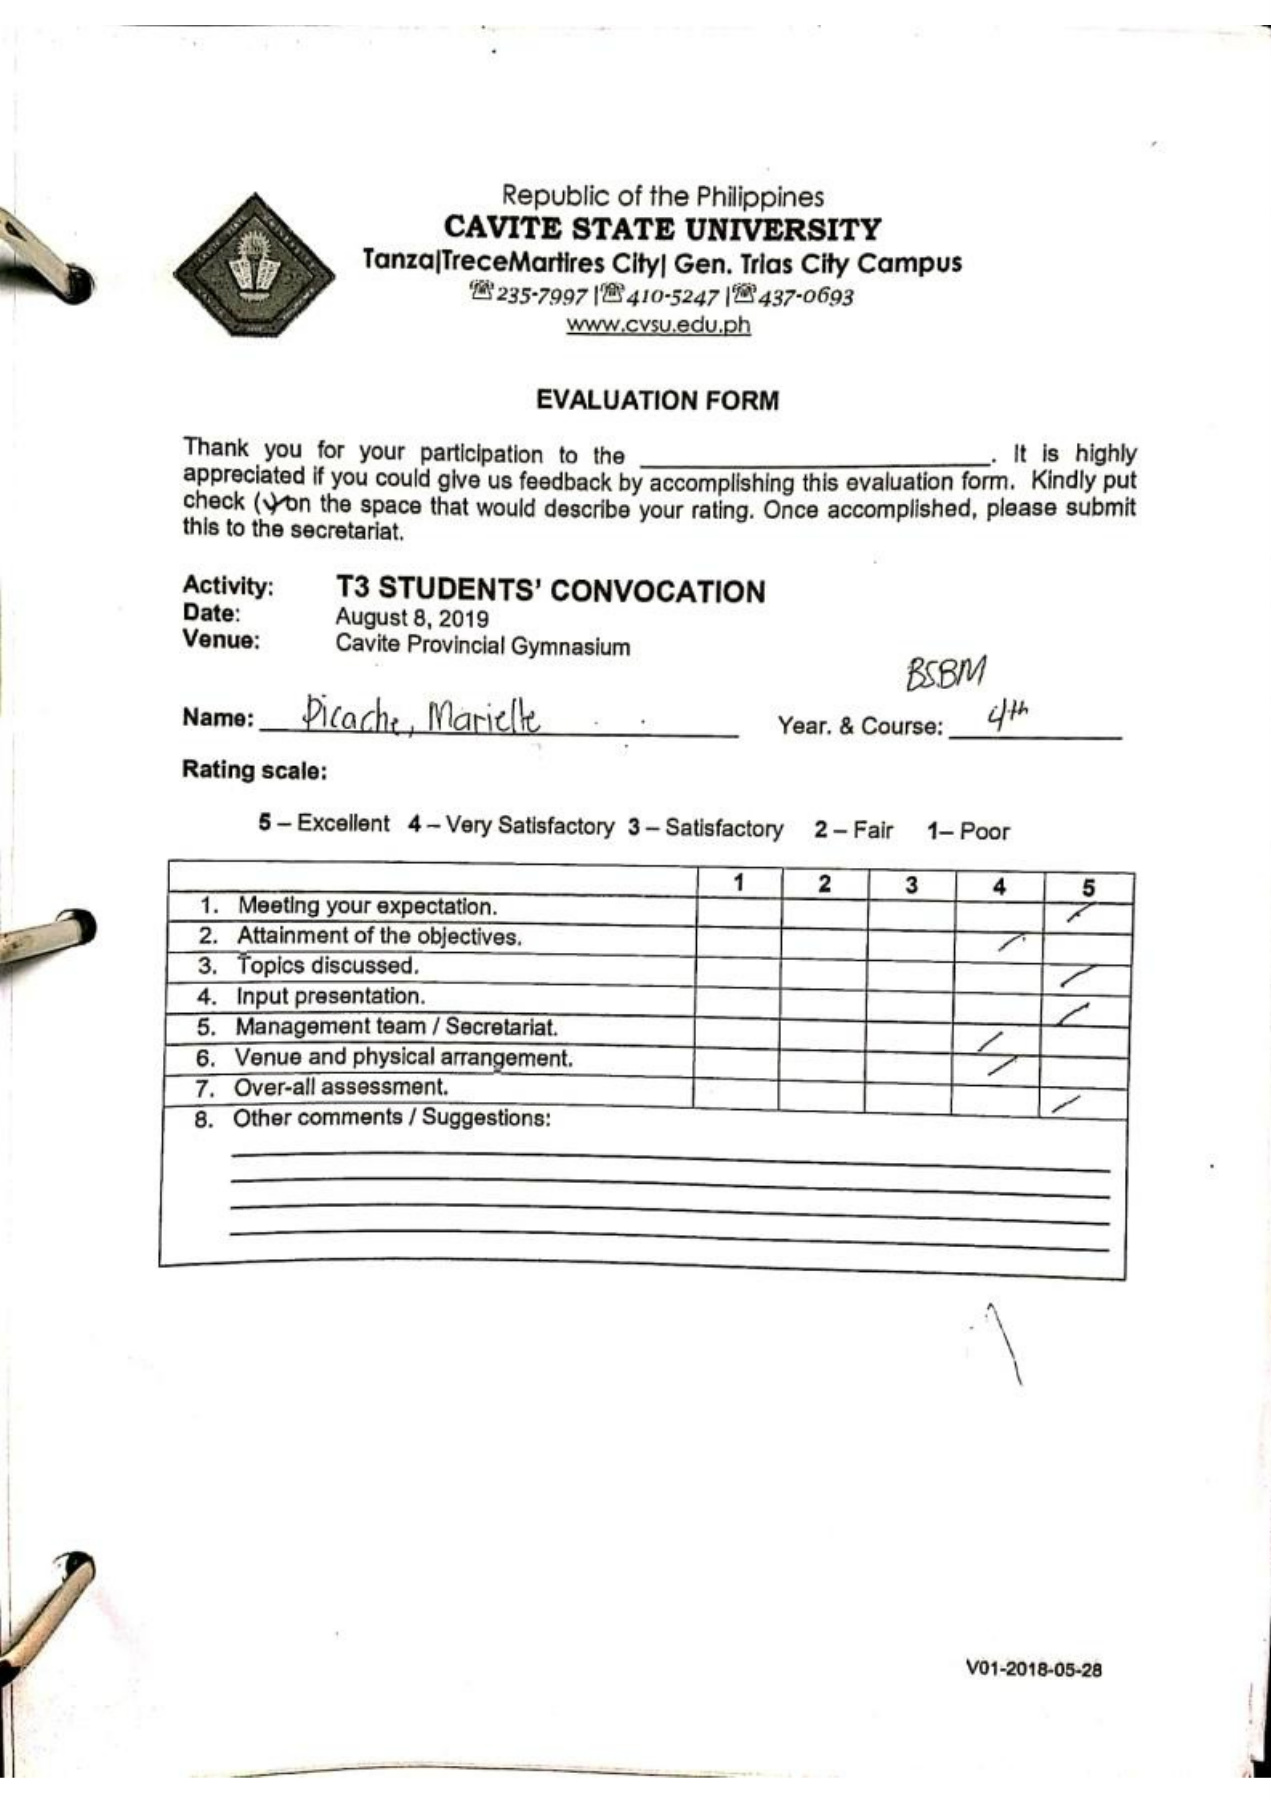 Republic of the Philippines
CAVITE STATE UNIVERSITY
Tanza|TreceMartires City| Gen. Trias City Campus
☏ 235-7997 |☏ 410-5247 |☏ 437-0693
www.cvsu.edu.ph
EVALUATION FORM
Thank you for your participation to the ____________________. It is highly
appreciated if you could give us feedback by accomplishing this evaluation form. Kindly put
check (✓) on the space that would describe your rating. Once accomplished, please submit
this to the secretariat.
Activity: T3 STUDENTS' CONVOCATION
Date: August 8, 2019
Venue: Cavite Provincial Gymnasium
BSBM
Name: Picache, Marielle Year. & Course: 4th
Rating scale:
5 – Excellent 4 – Very Satisfactory 3 – Satisfactory 2 – Fair 1– Poor
1 2 3 4 5
1. Meeting your expectation. /
2. Attainment of the objectives. /
3. Topics discussed. /
4. Input presentation. /
5. Management team / Secretariat. /
6. Venue and physical arrangement. /
7. Over-all assessment. /
8. Other comments / Suggestions:
V01-2018-05-28